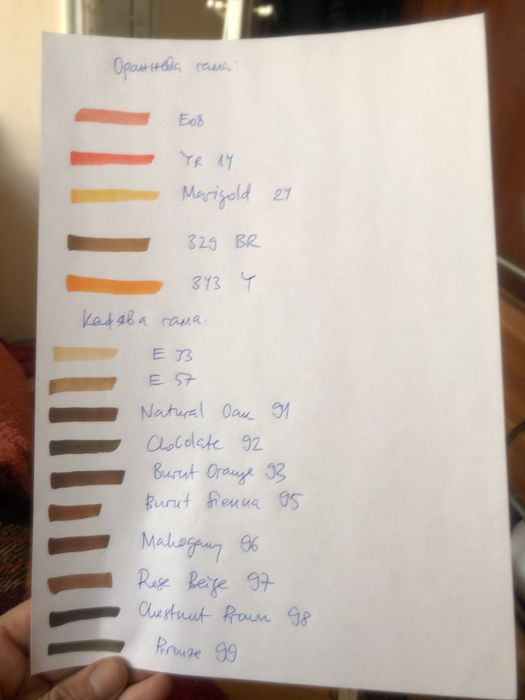 Оранжева гама:
E08
YR 14
Marigold 24
329 BR
343 Y
Кафява гама:
E 33
E 57
Natural Oak 91
Chocolate 92
Burut Orange 93
Burut Sienna 95
Mahogany 96
Rose Beige 97
Chestnut Broun 98
Bronze 99